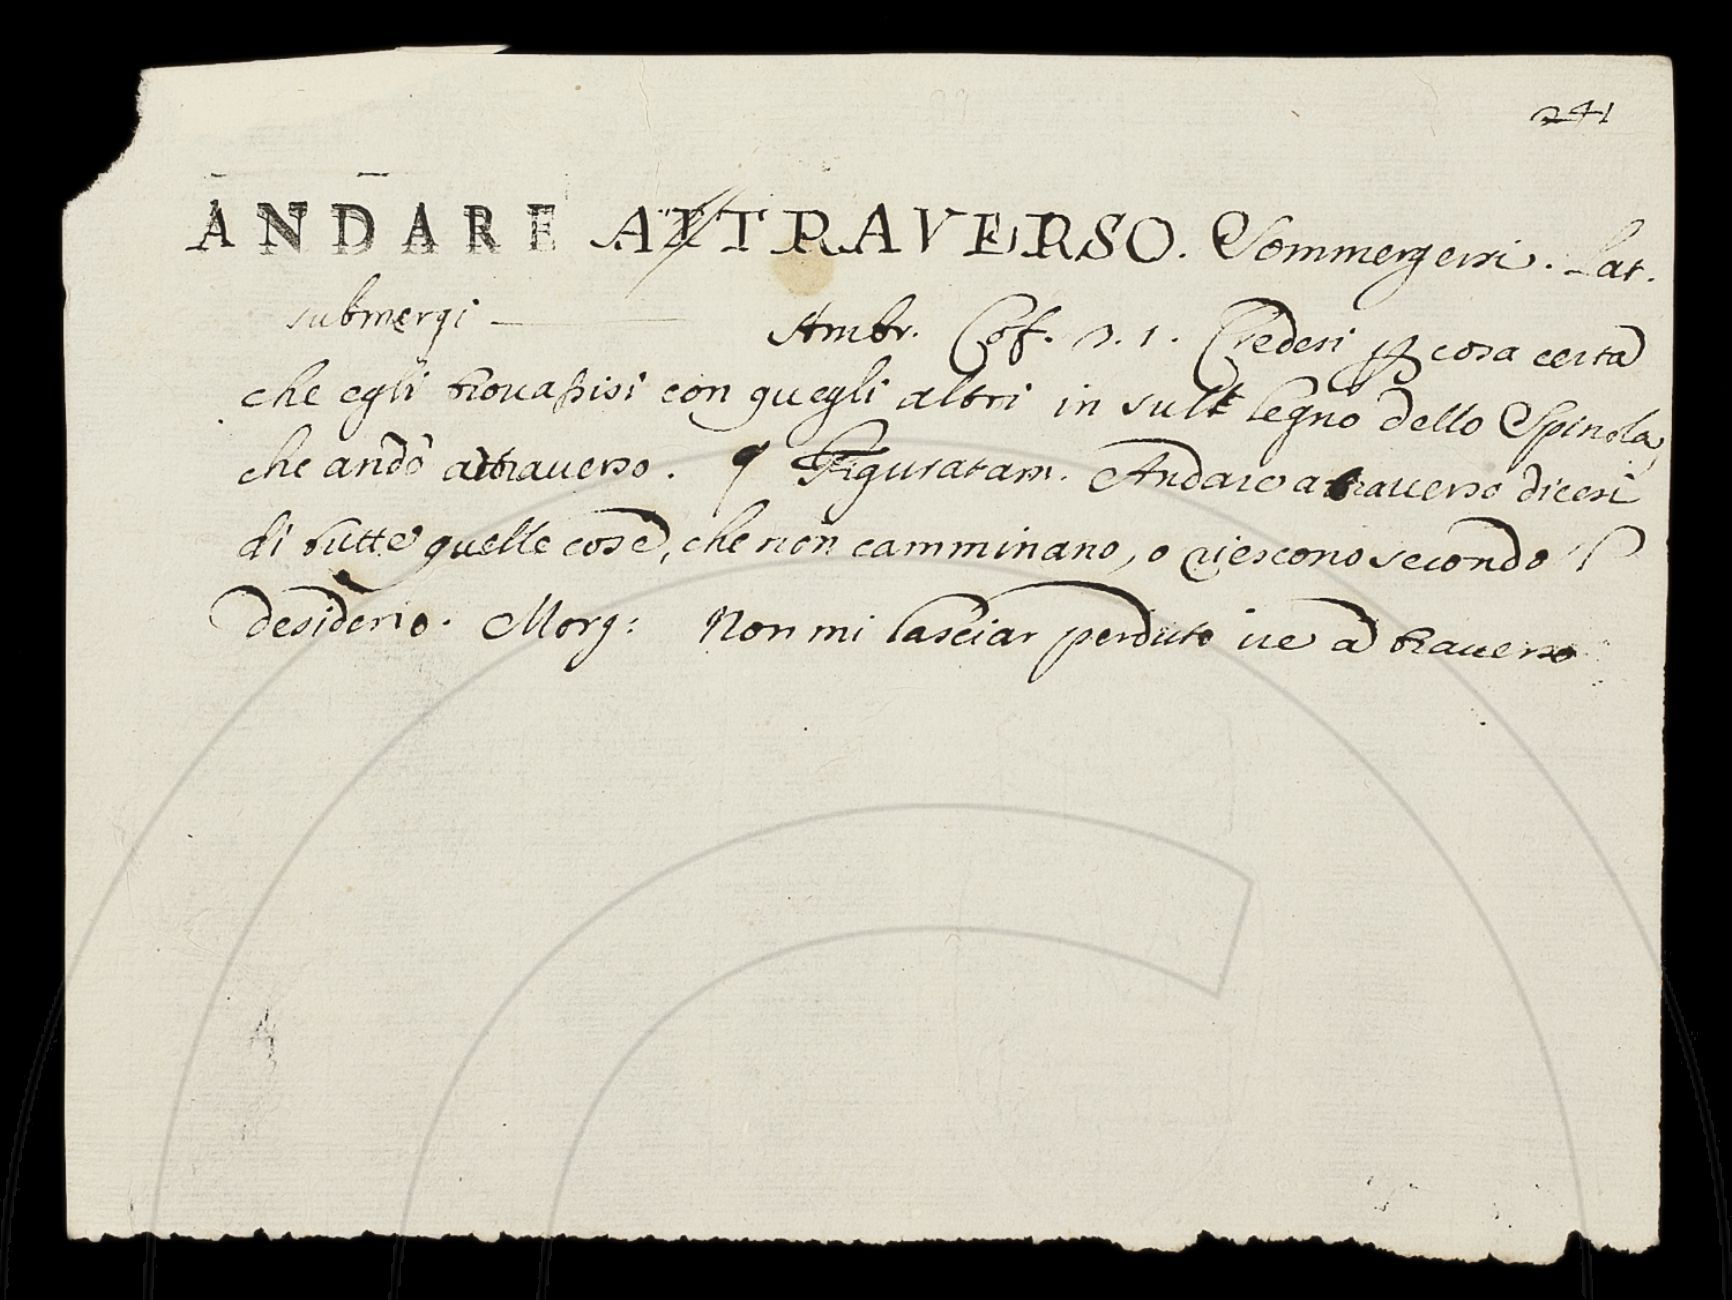 241
ANDARE ATTRAVERSO. Sommergersi. Lat.
submergi Ambr. Cof. 3. 1. Credesi ꝑ cosa certa
che egli trovaßisi con quegli altri in sul legno dello Spinola,
che andò attraverso. ¶ Figuratam. Andare a traverso dicesi
di tutte quelle cose, che non camminano, o riescono secondo 'l
desiderio. Morg: Non mi lasciar perduto ire a traverso